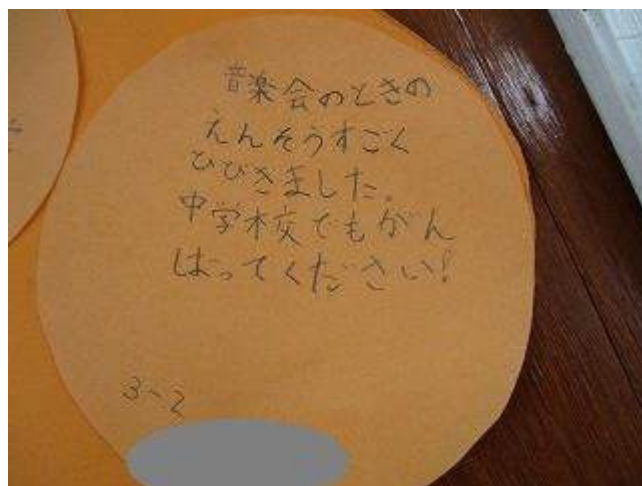 音楽会のときの
えんそうすごく
ひびきました。
中学校でもがん
ばってください!
3-2